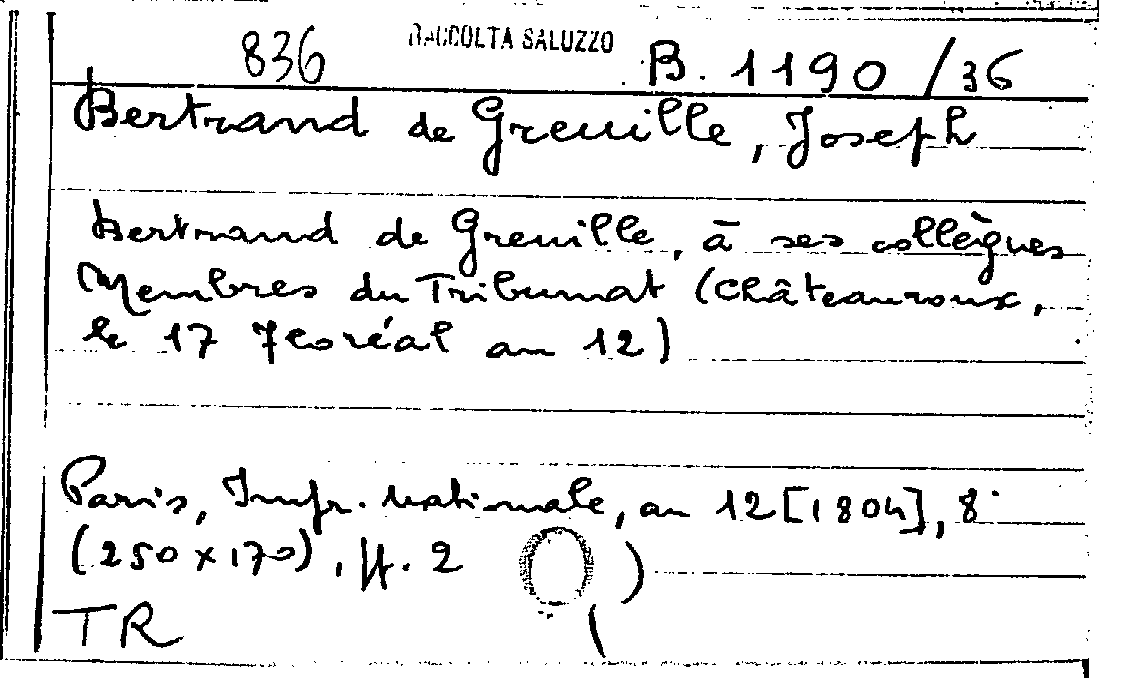 836 RACCOLTA SALUZZO B. 1190/36
Bertrand de Greuille, Joseph
Bertrand de Greuille, à ses collègues
Membres du Tribunat (Châteauroux,
le 17 floréal an 12)
Paris, Impr. Nationale, an 12 [1804], 8°
(250x170), ff. 2 )
TR (